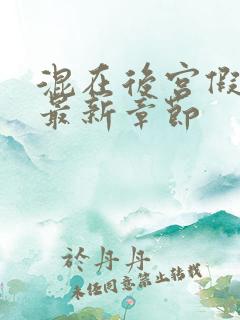 混在後宮假
最新章節
於丹丹
未经同意禁止转载